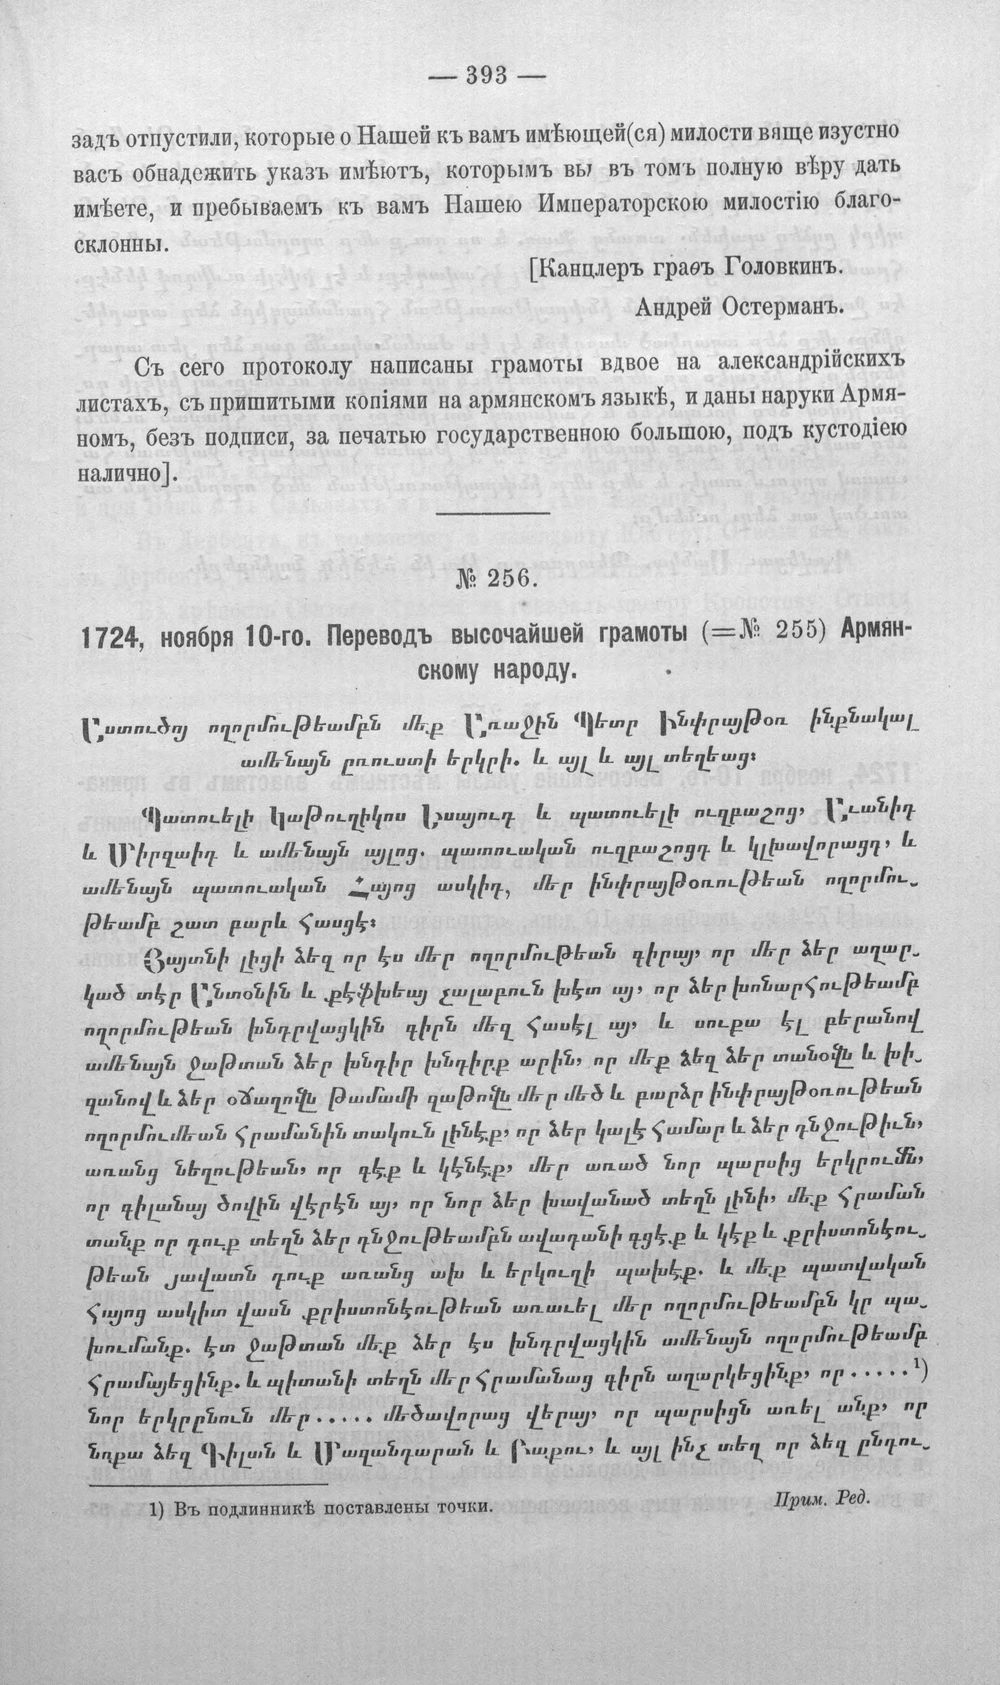 — 393 —
задъ отпустили, которые о Нашей къ вамъ имѣющей(ся) милости вяще изустно
васъ обнадежить указъ имѣютъ, которымъ вы въ томъ полную вѣру дать
имѣете, и пребываемъ къ вамъ Нашею Императорскою милостію благо-
склонны.
[Канцлеръ граѳъ Головкинъ.
Андрей Остерманъ.
Съ сего протоколу написаны грамоты вдвое на александрійскихъ
листахъ, съ пришитыми копіями на армянскомъ языкѣ, и даны наруки Армя-
номъ, безъ подписи, за печатью государственною большою, подъ кустодіею
налично].
№ 256.
1724, ноября 10-го. Переводъ высочайшей грамоты (=№ 255) Армян-
скому народу.
Աստուծոյ ողորմութեամբն մեք Առաջին Պետր Ինփրայթօռ ինքնակալ
ամենայն ըռուստի երկրի. և այլ և այլ տեղեաց։
Պատուելի կաթուղիկոս Եսայուդ և պատուելի ուզբաշոց, Աւանիդ
և Միրզաիդ և ամենայն այլոց. պատուական ուզբաշոցդ և կլխավորացդ, և
ամենայն պատուական Հայոց ասկիդ, մեր ինփրայթօռութեան ողորմու-
թեամբ շատ բարև հասցէ։
Յայտնի լիցի ձեզ որ էս մեր ողորմութեան գիրայ, որ մեր ձեր աղար-
կած տէր Անտօնին և քէֆխեայ չալաբուն խէտ այ, որ ձեր խոնարհութեամբ
ողորմութեան խնդրվացկին գիրն մեզ հասել այ, և սուքա էլ բերանով
ամենայն ջաթտան ձեր խնդիր խնդիրք արին, որ մեք ձեզ ձեր տանօվն և խի-
զանով և ձեր օճաղովն թամամի զաթովն մեր մեծ և բարձր ինփրայթօռութեան
ողորմումեան հրամանին տակուն լինէք, որ ձեր կալէ համար և ձեր դնջութիւն,
առանց նեղութեան, որ գէք և կէնէք, մեր առած նոր պարսից երկրումն,
որ գիլանայ ծովին վէրէն այ, որ նոր ձեր խավանած տեղն լինի, մեք հրաման
տանք որ դուք տեղն ձեր դնջութեամբն ավադանի գցէք և կէք և քրիստոնէու-
թեան յավատն դուք առանց ախ և երկուղի պախէք. և մեք պատվական
Հայոց ասկիտ վասն քրիստոնէութեան առաւել մեր ողորմութեամբն կը պա-
խումանք. էտ ջաթտան մեք ձեր էս խնդրվացկին ամենայն ողորմութեամբ
հրամայեցինք. և պիտանի տեղն մեր հրամանաց գիրն աղարկեցինք, որ . . . . . ¹)
նոր երկրընուն մեր . . . . . մեծավորաց վերայ, որ պարսիցն առել անք, որ
նոքա ձեզ Գիլան և Մազանդարան և Բաքու, և այլ ինչ տեղ որ ձեզ ընդու-
1) Въ подлинникѣ поставлены точки.
Прим. Ред.